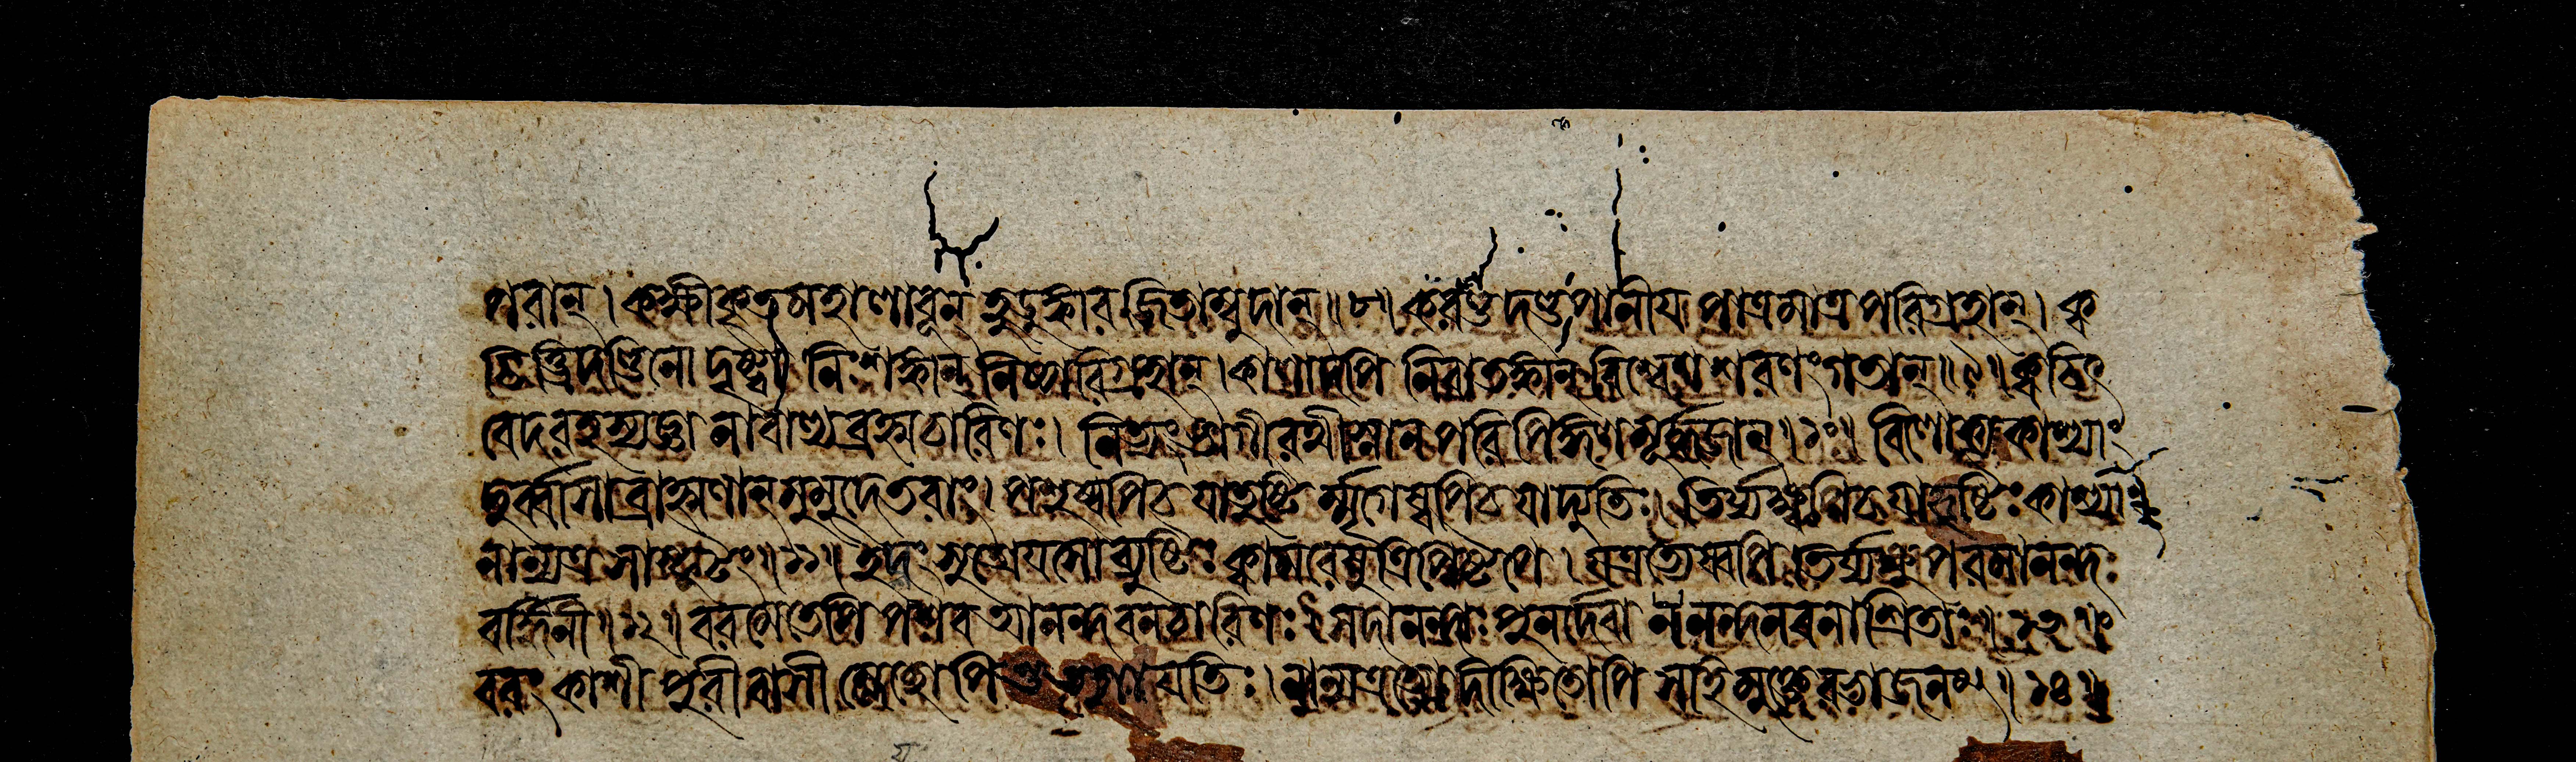 ধরান্। কক্ষীকৃতমহালাবূন্ হুড়ুক্কারজিতাম্বুদান্॥৮॥ করণ্ডদণ্ডপানীয়পাত্রমাত্রপরিগ্রহান্। ক্ব
চিত্ত্রিদণ্ডিনো দৃষ্ট্বা নিঃশঙ্কান্ নিষ্পরিগ্রহান্। কালাদপি নিরাতঙ্কান্ বিশ্বেশশরণং গতান্॥৯॥ ক্বচিৎ
বেদরহস্যজ্ঞানাবাল্যব্রহ্মচারিণঃ। নিত্যং ভাগীরথীস্নানপরিপিঙ্গলমূর্দ্ধজান্॥১০॥ বিলোক্য কাশ্যাং
দুর্ব্বাসা ব্রাহ্মণান্ মুমুদেতরাং। পশুষ্বপি চ যা তুষ্টির্ম্মৃগেষ্বপি চ যা দ্যুতিঃ। তির্য্যক্ষ্বপি চ যা হৃষ্টিঃ কাশ্যাং
নান্যত্র সা স্ফুটং॥১১॥ ইদং সুশ্রেয়সো ব্যুষ্টিঃ ক্বামরেষু ত্রিপিষ্টপে। যত্রত্যেষ্বপি তির্য্যক্ষু পরমানন্দ
বর্দ্ধিনী॥১২॥ বরমেতেপি পশব আনন্দবনচারিণঃ। সদানন্দাঃ পুনর্দেবা ন নন্দনবনাশ্রিতাঃ॥১৩॥
বরং কাশীপুরীবাসী ম্লেচ্ছোপি শুভায়তিঃ। নান্যত্রত্যো দীক্ষিতোপি স হি মুক্তেরভাজনম্॥১৪॥